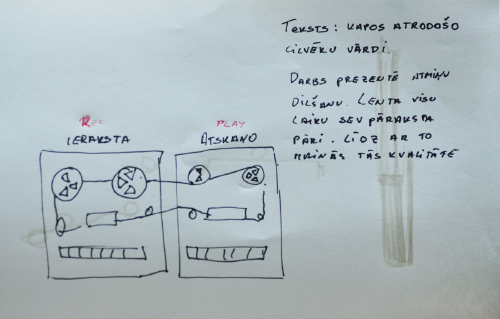 TEKSTS: KAPOS ATRODOŠO
CILVĒKU VĀRDI.
DARBS PREZENTĒ ATMIŅU
DILŠANU. LENTA VISU
LAIKU SEV PĀRAKSTA
PĀRI. LĪDZ AR TO
MAINĀS TĀS KVALITĀTE
REC
IERAKSTA
PLAY
ATSKAŅO